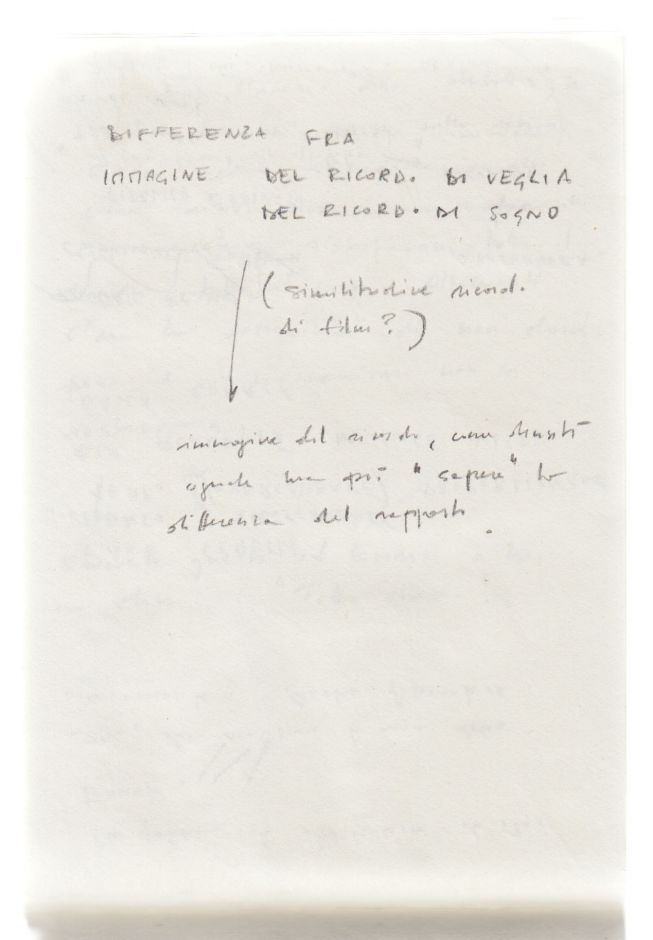 DIFFERENZA FRA
IMMAGINE DEL RICORD. DI VEGLIA
DEL RICORD. DI SOGNO
(similitudine ricord.
di film?)
immagine del ricordo, come densità
uguale ma poi "sapere" la
differenza del rapporto.